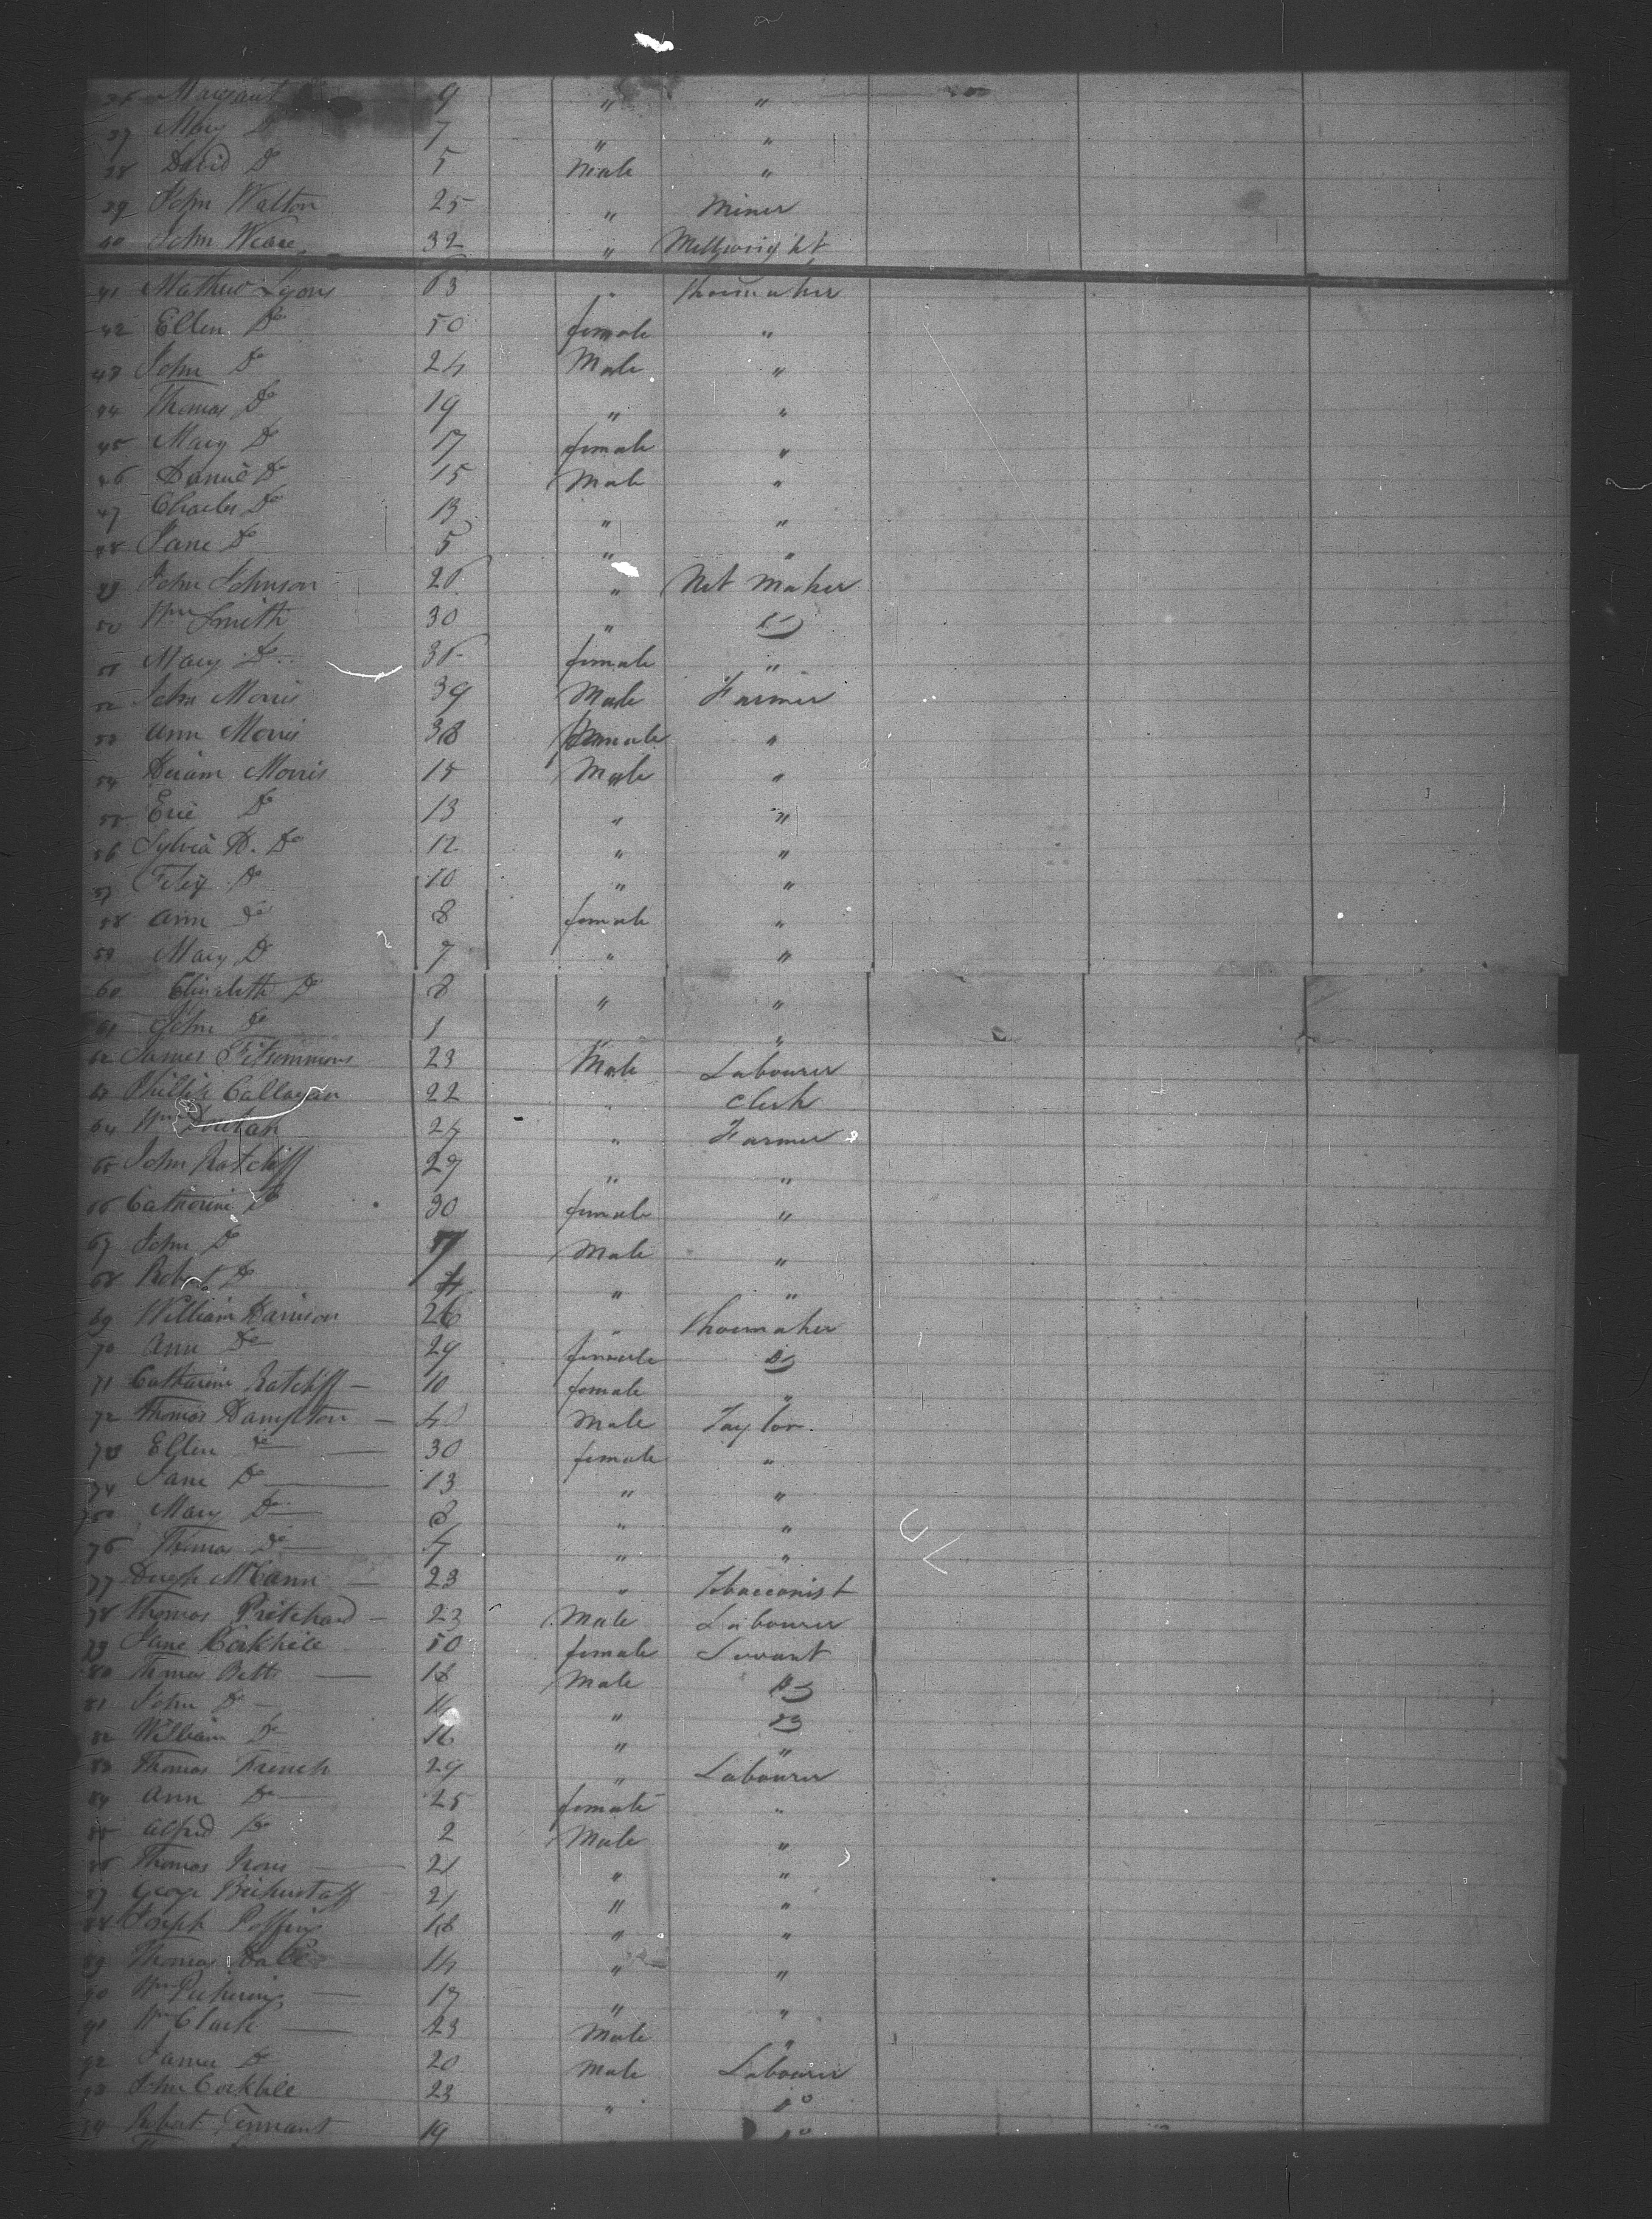 36 Margaret 9 " "
37 Mary Do 7 " "
38 David Do 5 Male "
39 John Walton 25 " Miner
40 John Weare 32 " Millwright
41 Mathew Lyons 63 " Shoemaker
42 Ellen Do 50 female "
43 John Do 24 Male "
44 Thomas Do 19 " "
45 Mary Do 17 female "
46 Daniel Do 15 Male "
47 Charles Do 13 " "
48 Jane Do 5 " "
49 John Johnson " Net Maker
50 Wm Smith 30 " Do
51 Mary Do female "
52 John Morris 39 Male Farmer
53 Ann Morris 38 Female "
54 Morris 15 Male "
55 Do 13 " "
56 Sylvia D. Do 12 " "
57 Do 10 " "
58 Ann Do 8 female "
59 Mary Do 7 " "
60 Elizabeth Do 8 " "
61 John Do 1 " "
62 James Fitsimmons 23 Male Labourer
63 Phillip Callagan 22 " Clerk
64 Wm 24 " Farmer
65 John Ratcliff 29 " "
66 Catherine Do 30 female "
67 John Do Male "
68 Robert Do 4 " "
69 William Davison 26 " Shoemaker
70 Ann Do 29 female Do
71 Catharine Ratcliff 10 female "
72 Thomas Dampston 40 Male Taylor
73 Ellen Do 30 female "
74 Jane Do 13 " "
75 Mary Do 8 " "
76 Thomas Do 4 " "
77 McCann 23 " Tobacconist
78 Thomas Pritchard 23 Male Labourer
79 Jane Corkhill 50 female Servant
80 Thomas Betts 18 Male Do
81 John Do " Do
82 William Do 16 " "
83 Thomas French 29 " Labourer
84 Ann Do 25 female "
85 Alfred Do 2 Male "
86 Thomas 21 " "
87 George Bickerstaff 21 " "
88 Joseph 18 " "
89 Thomas 14 " "
90 Wm Pickering 17 " "
91 Wm Clark 23 Male "
92 James Do 20 Male Labourer
93 John Corkhill 23 " Do
94 Robert Tennant 19 Do